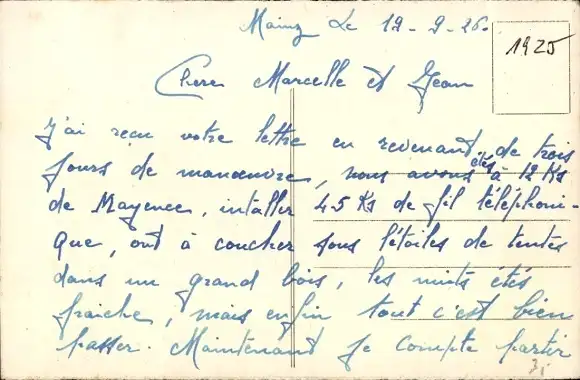 Mainz Le 19-9-26.
1925
Chere Marcelle et Jean
J'ai reçu votre lettre en revenant de trois
jours de manoeuvre, nous avons étés à 12 Ks
de Mayence, intaller 45 Ks de fil téléphoni-
que, ont à coucher sous l'étoiles de tentes
dans un grand bois, les nuits étés
fraiche, mais enfin tout c'est bien
passer. Maintenant je compte partir